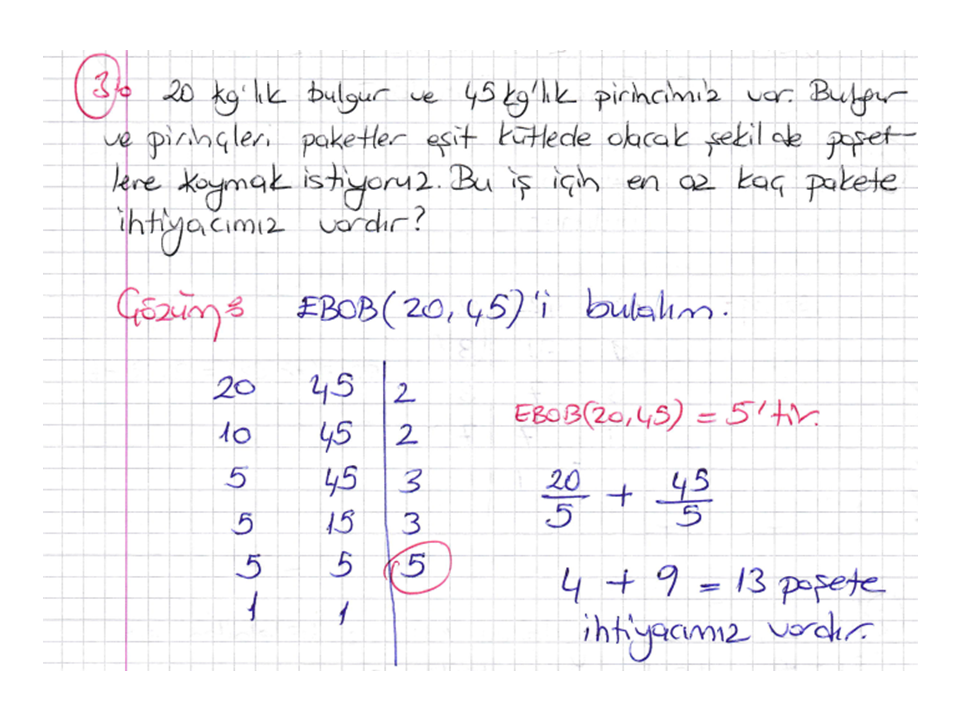 3% 20 kg'lık bulgur ve 45 kg'lık pirincimiz var. Bulgur
ve pirinçleri paketler eşit kütlede olacak şekilde poşet-
lere koymak istiyoruz. Bu iş için en az kaç pakete
ihtiyacımız vardır?
Çözüm: EBOB(20,45)'i bulalım.
20 45 | 2
10 45 | 2
5 45 | 3
5 15 | 3
5 5 | 5
1 1 |
EBOB(20,45) = 5'tir.
20/5 + 45/5
4 + 9 = 13 poşete
ihtiyacımız vardır.